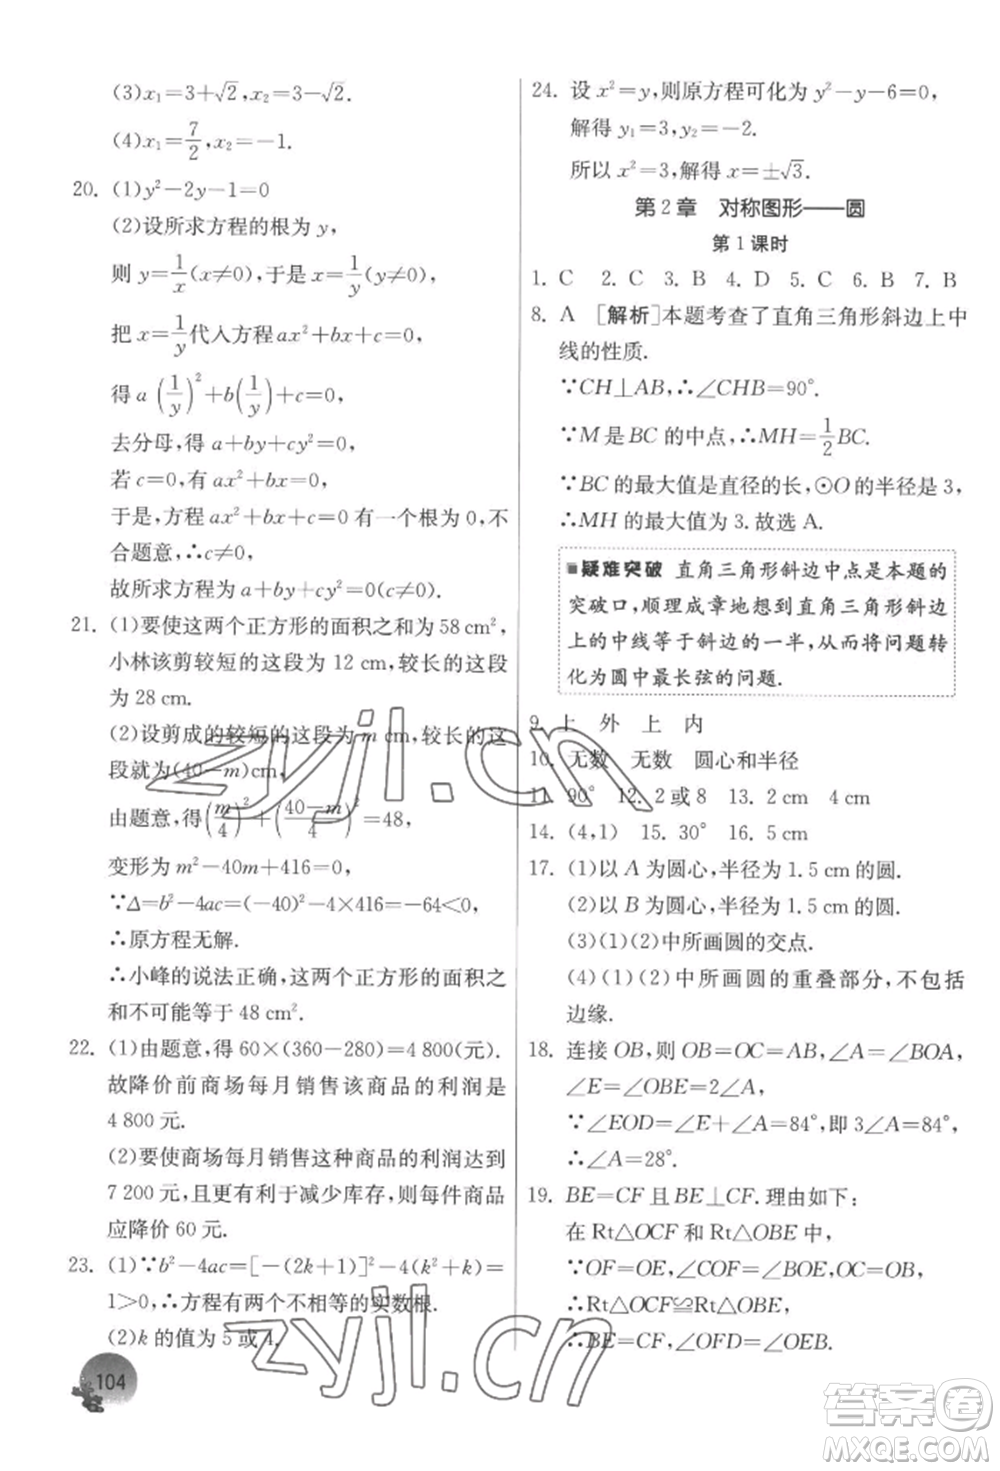 (3)x₁=3+√2,x₂=3-√2.
(4)x₁=7/2,x₂=-1.
20. (1)y²-2y-1=0
(2)设所求方程的根为 y,
则 y=1/x(x≠0),于是 x=1/y(y≠0),
把 x=1/y代入方程 ax²+bx+c=0,
得 a(1/y)²+b(1/y)+c=0,
去分母,得 a+by+cy²=0,
若 c=0,有 ax²+bx=0,
于是,方程 ax²+bx+c=0 有一个根为 0,不
合题意,∴c≠0,
故所求方程为 a+by+cy²=0(c≠0)
21. (1)要使这两个正方形的面积之和为 58 cm²,
小林该剪较短的这段为 12 cm,较长的这段
为 28 cm.
(2)设剪成的较短的这段为 m cm,较长的这
段就为(40-m)cm,
由题意,得(m/4)²+((40-m)/4)²=48,
变形为 m²-40m+416=0,
∵Δ=b²-4ac=(-40)²-4×416=-64<0,
∴原方程无解.
∴小峰的说法正确,这两个正方形的面积之
和不可能等于 48 cm².
22. (1)由题意,得 60×(360-280)=4 800(元).
故降价前商场每月销售该商品的利润是
4 800 元.
(2)要使商场每月销售这种商品的利润达到
7 200 元,且更有利于减少库存,则每件商品
应降价 60 元.
23. (1)∵b²-4ac=[-(2k+1)]²-4(k²+k)=
1>0,∴方程有两个不相等的实数根.
(2)k 的值为 5 或 4.
104
24. 设 x²=y,则原方程可化为 y²-y-6=0,
解得 y₁=3,y₂=-2.
所以 x²=3,解得 x=±√3.
第 2 章 对称图形——圆
第 1 课时
1. C 2. C 3. B 4. D 5. C 6. B 7. B
8. A [解析]本题考查了直角三角形斜边上中
线的性质.
∵CH⊥AB,∴∠CHB=90°.
∵M 是 BC 的中点,∴MH=1/2BC.
∵BC 的最大值是直径的长,⊙O 的半径是 3,
∴MH 的最大值为 3.故选 A.
疑难突破 直角三角形斜边中点是本题的
突破口,顺理成章地想到直角三角形斜边
上的中线等于斜边的一半,从而将问题转
化为圆中最长弦的问题.
9. 上 外 上 内
10. 无数 无数 圆心和半径
11. 90° 12. 2 或 8 13. 2 cm 4 cm
14. (4,1) 15. 30° 16. 5 cm
17. (1)以 A 为圆心,半径为 1.5 cm 的圆.
(2)以 B 为圆心,半径为 1.5 cm 的圆.
(3)(1)(2)中所画圆的交点.
(4)(1)(2)中所画圆的重叠部分,不包括
边缘.
18. 连接 OB,则 OB=OC=AB,∠A=∠BOA,
∠E=∠OBE=2∠A,
∵∠EOD=∠E+∠A=84°,即 3∠A=84°,
∴∠A=28°.
19. BE=CF 且 BE⊥CF.理由如下:
在 Rt△OCF 和 Rt△OBE 中,
∵OF=OE,OC=OB,
∴Rt△OCF≌Rt△OBE,
∴BE=CF,∠OFD=∠OEB.
zyjl.cn
zyjl.cn
答案圈
MXQE.COM